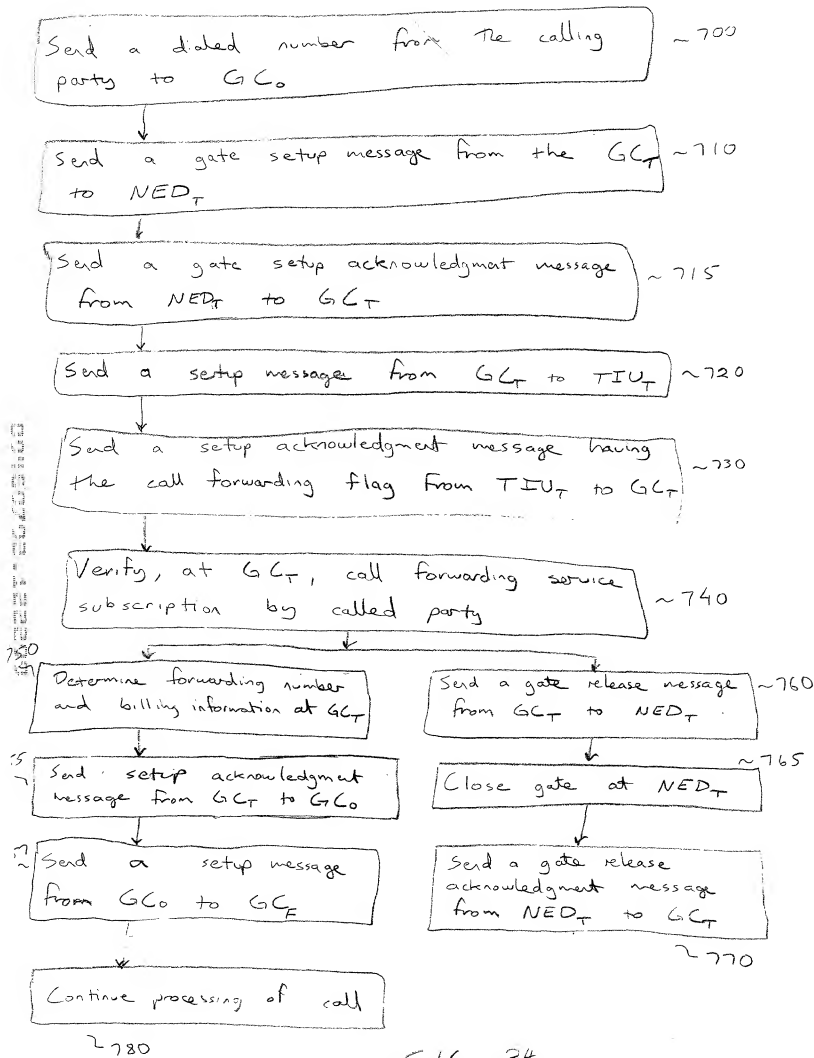 Send a dialed number from the calling
party to GCo
~ 700
Send a gate setup message from the GCT
to NEDT
~ 710
Send a gate setup acknowledgment message
from NEDT to GCT
~ 715
Send a setup message from GCT to TIUT
~ 720
Send a setup acknowledgment message having
the call forwarding flag from TIUT to GCT
~ 730
Verify, at GCT, call forwarding service
subscription by called party
~ 740
Determine forwarding number
and billing information at GCT
Send setup acknowledgment
message from GCT to GCo
Send a setup message
from GCo to GCF
Continue processing of call
~ 780
Send a gate release message
from GCT to NEDT
~ 760
Close gate at NEDT
~ 765
Send a gate release
acknowledgment message
from NEDT to GCT
~ 770